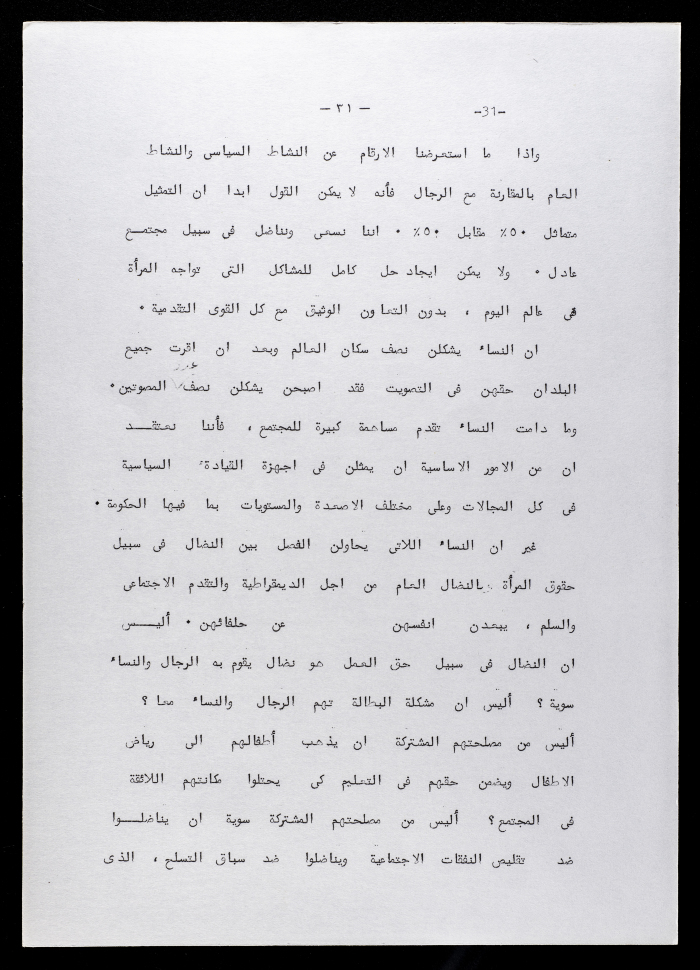 - ٣١ -
-31-
واذا ما استعرضنا الارقام عن النشاط السياسى والنشاط
العام بالمقارنة مع الرجال فأنه لا يمكن القول ابدا ان التمثيل
متماثل ٥٠٪ مقابل ٥٠٪ ٠ اننا نسعى ونناضل فى سبيل مجتمـــع
عادل ٠ ولا يمكن ايجاد حل كامل للمشاكل التى تواجه المرأة
فى عالم اليوم ، بدون التعاون الوثيق مع كل القوى التقدمية ٠
ان النساء يشكلن نصف سكان العالم وبعد ان اقرت جميع
البلدان حقهن فى التصويت فقد اصبحن يشكلن نصف المصوتين ٠
وما دامت النساء تقدم مساهمة كبيرة للمجتمع ، فأننا نعتقـــد
ان من الامور الاساسية ان يمثلن فى اجهزة القيادة السياسية
فى كل المجالات وعلى مختلف الاصعدة والمستويات بما فيها الحكومة ٠
غير ان النساء اللاتى يحاولن الفصل بين النضال فى سبيل
حقوق المرأة بالنضال العام من اجل الديمقراطية والتقدم الاجتماعى
والسلم ، يبعدن انفسهن عن حلفائهن ٠ أليـــس
ان النضال فى سبيل حق العمل هو نضال يقوم به الرجال والنساء
سوية ؟ أليس ان مشكلة البطالة تهم الرجال والنساء معا ؟
أليس من مصلحتهم المشتركة ان يذهب أطفالهم الى رياض
الاطفال ويضمن حقهم فى التعليم كى يحتلوا مكانتهم اللائقة
فى المجتمع ؟ أليس من مصلحتهم المشتركة سوية ان يناضلـــوا
ضد تقليص النفقات الاجتماعية ويناضلوا ضد سباق التسلح ، الذى